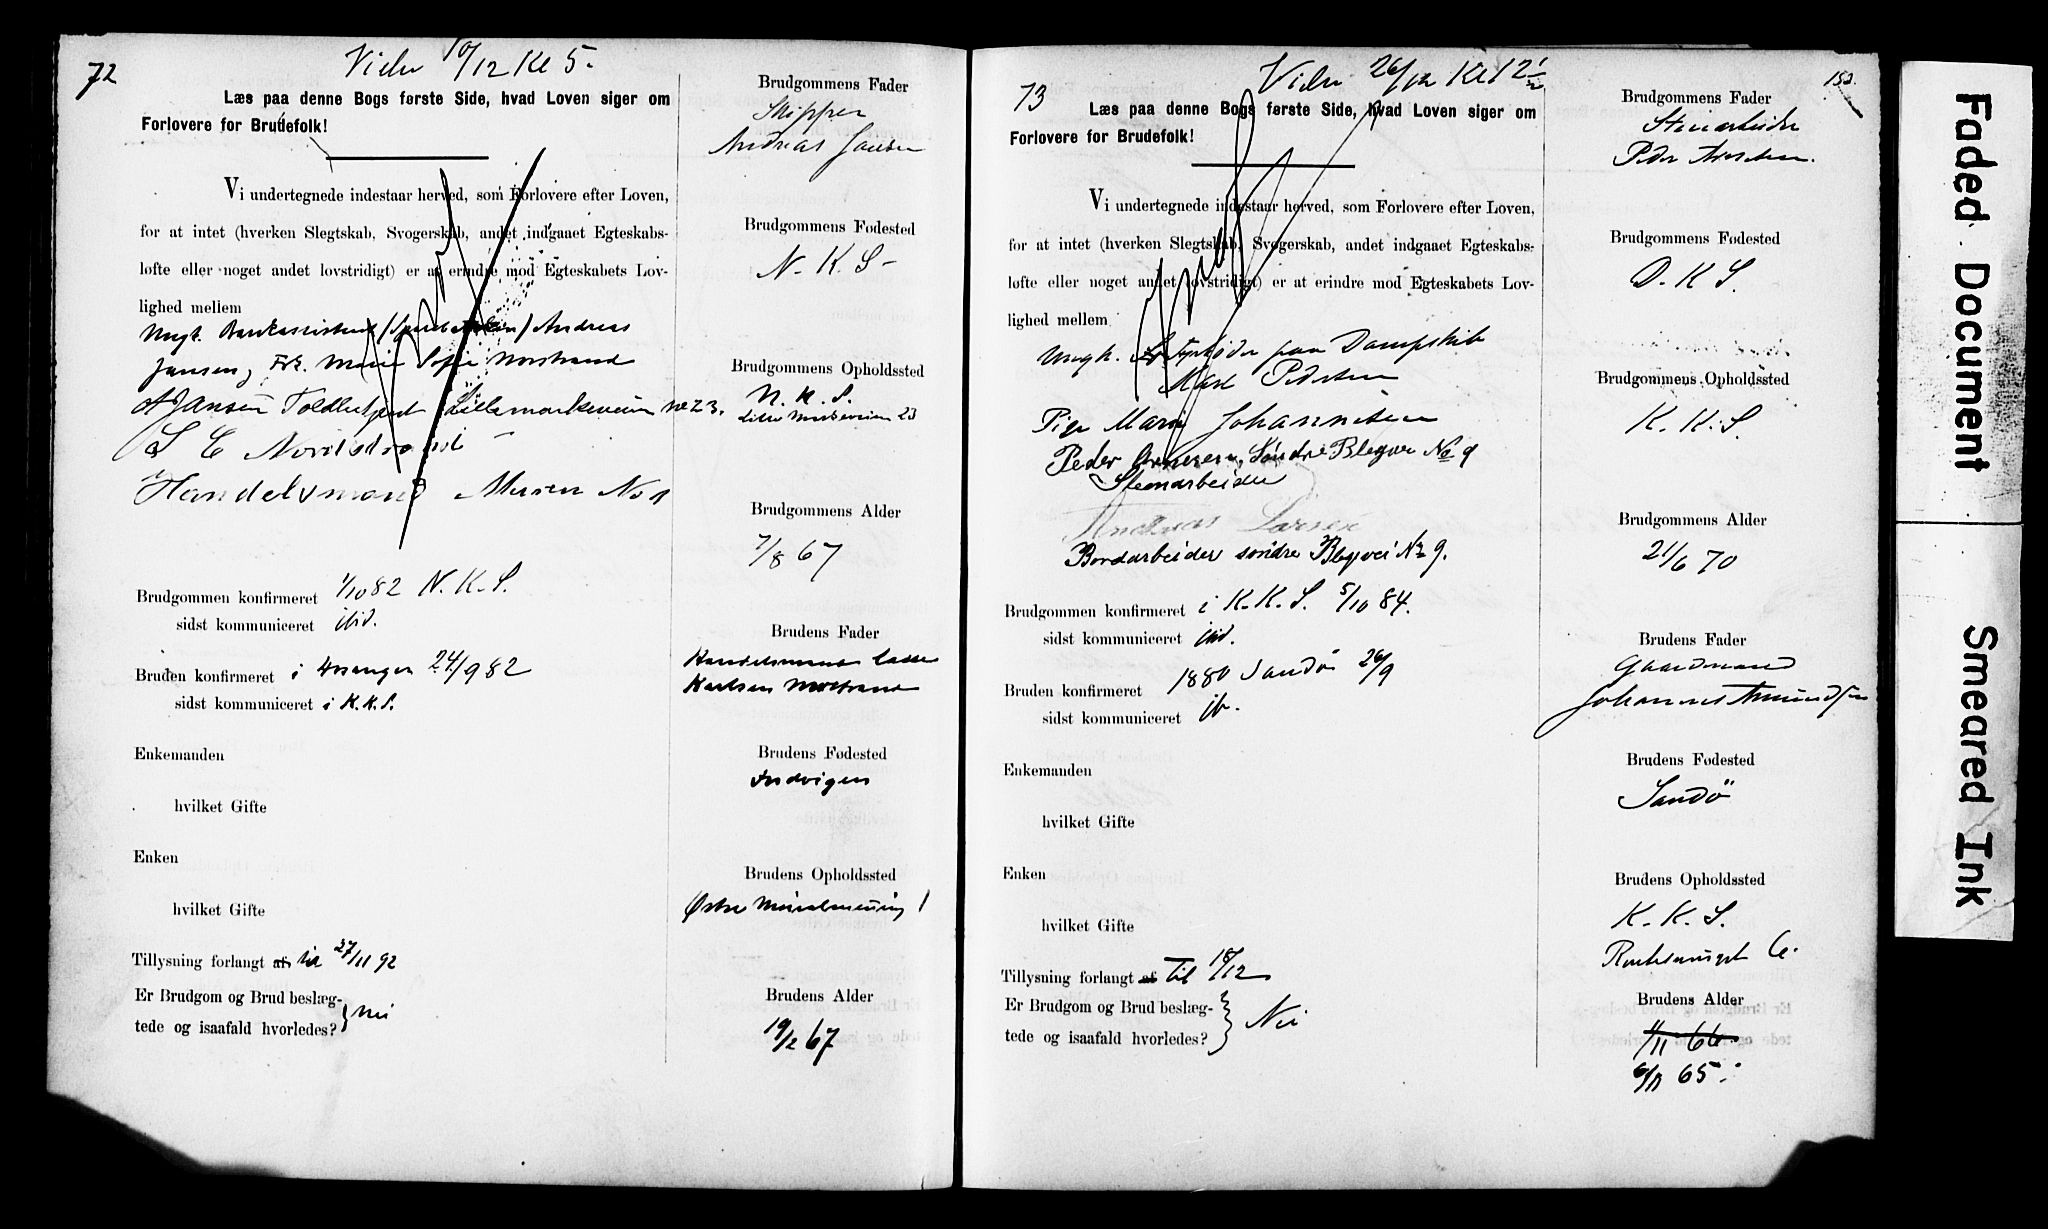 72
Vies 10/12 Kl 5.
Læs paa denne Bogs første Side, hvad Loven siger om
Forlovere for Brudefolk!
Vi undertegnede indestaar herved, som Forlovere efter Loven,
for at intet (hverken Slegtskab, Svogerskab, andet indgaaet Egteskabs-
løfte eller noget andet lovstridigt) er at erindre mod Egteskabets Lov-
lighed mellem
Ungk. Andreas
Jansen, Frk. Marie Sofie Norstrand
A Jansen Toldbetjent Lillemarkeveien No 23.
S E Nordstrand
Handelsmand No 1
Brudgommen konfirmeret 1/10 82 N. K. S.
sidst kommuniceret ibid.
Bruden konfirmeret i 24/9 82
sidst kommuniceret i K. K. S.
Enkemanden
hvilket Gifte
Enken
hvilket Gifte
Tillysning forlangt af til 27/11 92
Er Brudgom og Brud beslæg-
tede og isaafald hvorledes? } Nei
Brudgommens Fader
Skipper
Andreas Jansen
Brudgommens Fødested
N. K. S.
Brudgommens Opholdssted
N. K. S.
23
Brudgommens Alder
7/8 67
Brudens Fader
Handelsmand Lasse
Karlsen Norstrand
Brudens Fødested
Indvigen
Brudens Opholdssted
Østre 1
Brudens Alder
19/2 67
73
Vies 26/12 Kl 12 1/2
Læs paa denne Bogs første Side, hvad Loven siger om
Forlovere for Brudefolk!
Vi undertegnede indestaar herved, som Forlovere efter Loven,
for at intet (hverken Slegtskab, Svogerskab, andet indgaaet Egteskabs-
løfte eller noget andet lovstridigt) er at erindre mod Egteskabets Lov-
lighed mellem
Ungk. Fyrbøder paa Dampskib
Karl Pedersen
Pige Marie Johannesen
Peder Arnesen, Søndre Blegvei No 9
Stenarbeider
Andreas Larsen
Bordarbeider søndre Blegvei No 9.
Brudgommen konfirmeret i K. K. S. 5/10 84.
sidst kommuniceret ibid.
Bruden konfirmeret 1880 Sandö 26/9
sidst kommuniceret ib.
Enkemanden
hvilket Gifte
Enken
hvilket Gifte
Tillysning forlangt af Til 18/12
Er Brudgom og Brud beslæg-
tede og isaafald hvorledes? } Nei
152.
Brudgommens Fader
Stenarbeider
Peder Arnesen.
Brudgommens Fødested
D. K. S.
Brudgommens Opholdssted
K. K. S.
Brudgommens Alder
21/6 70
Brudens Fader
Gaardmand
Johannes Amundsen
Brudens Fødested
Sandö
Brudens Opholdssted
K. K. S.
6.
Brudens Alder
1/11 66
6/11 65.
Faded Document
Smeared Ink